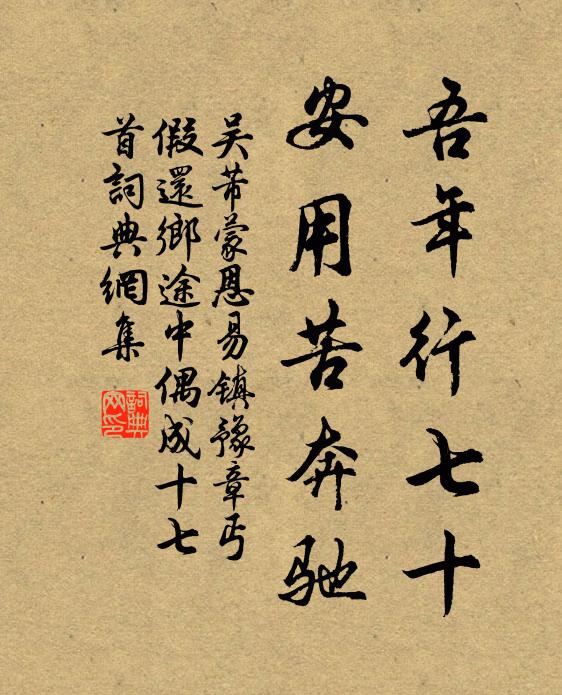 吾年行七十
安用苦奔驰
吴芾蒙恩易镇豫章丐
假還鄉途中偶成十七
首詞典網集
詞典
网印